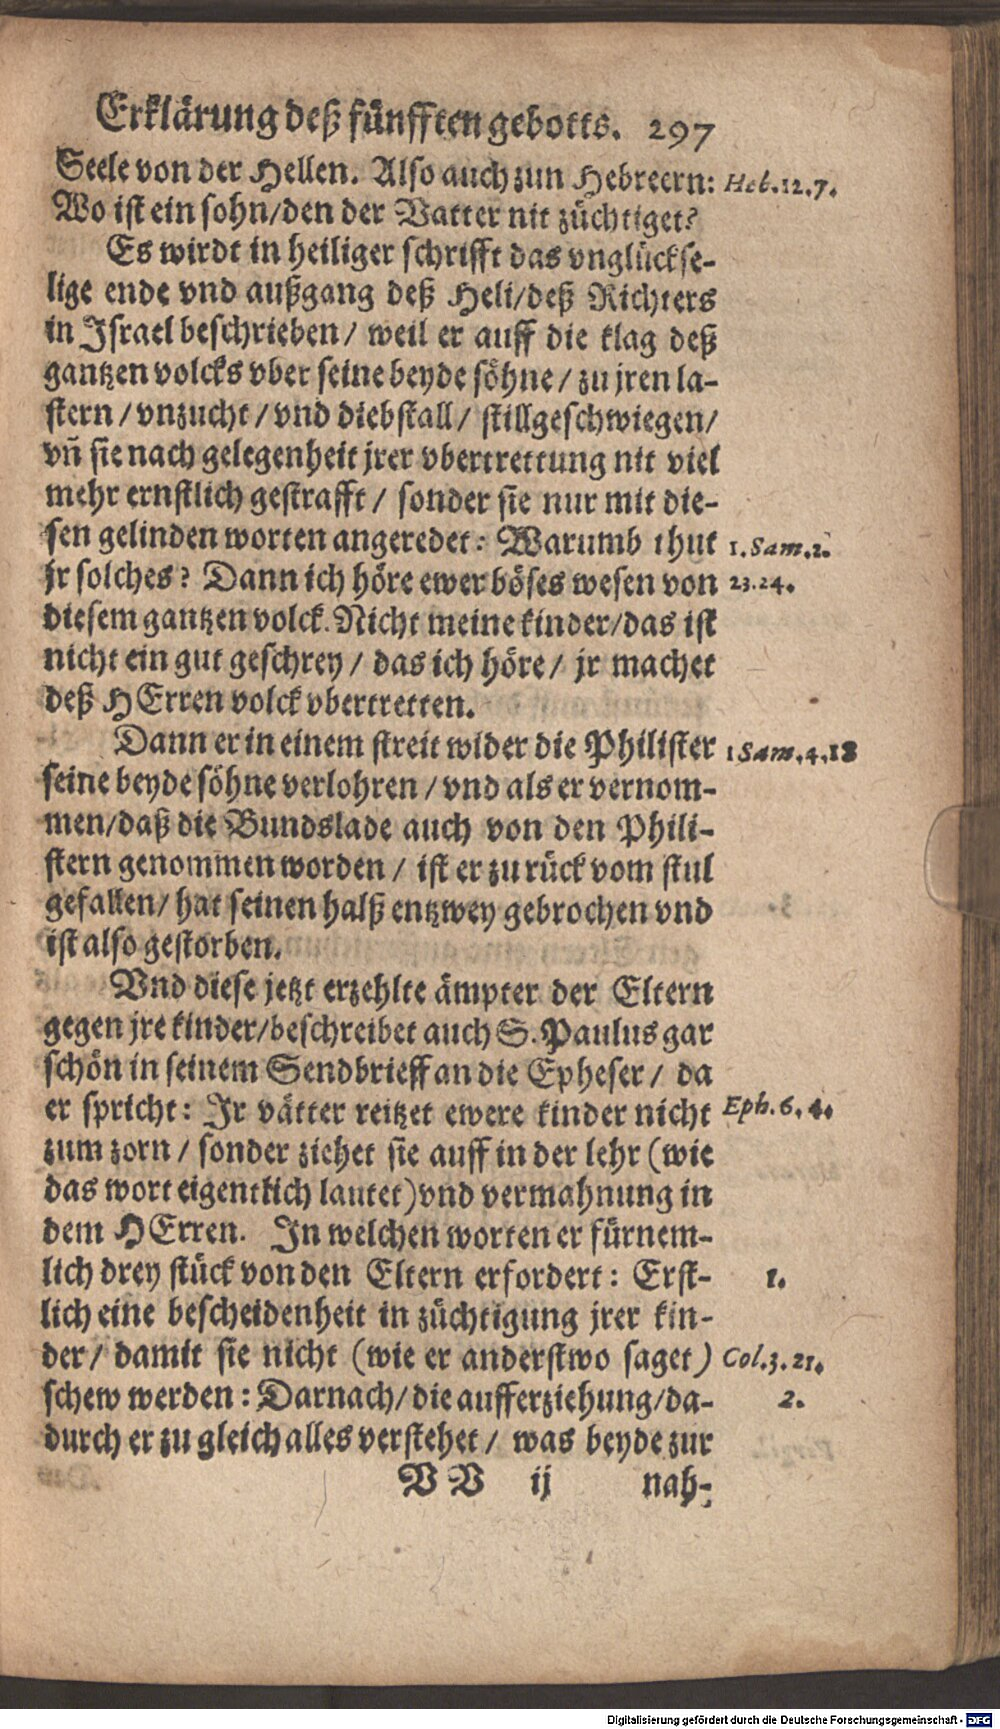 Erklärung deß fünfften gebotts. 297
Seele von der Hellen. Also auch zun Hebreern: Heb. 12. 7.
Wo ist ein sohn/den der Vatter nit züchtiget?
Es wirdt in heiliger schrifft das vnglückse-
lige ende vnd außgang deß Heli/deß Richters
in Israel beschrieben/ weil er auff die klag deß
gantzen volcks vber seine beyde söhne/ zu jren la-
stern/ vnzucht/ vnd diebstall/ stillgeschwiegen/
vñ sie nach gelegenheit jrer vbertrettung nit viel
mehr ernstlich gestrafft/ sonder sie nur mit die-
sen gelinden worten angeredet: Warumb thut 1. Sam. 2.
jr solches? Dann ich höre ewer böses wesen von 23. 24.
diesem gantzen volck. Nicht meine kinder/das ist
nicht ein gut geschrey/ das ich höre/ jr machet
deß HErren volck vbertretten.
Dann er in einem streit wider die Philister 1 Sam. 4. 18
seine beyde söhne verlohren/ vnd als er vernom-
men/daß die Bundslade auch von den Phili-
stern genommen worden/ ist er zu rück vom stul
gefallen/ hat seinen halß entzwey gebrochen vnd
ist also gestorben.
Vnd diese jetzt erzehlte ämpter der Eltern
gegen jre kinder/beschreibet auch S. Paulus gar
schön in seinem Sendbrieff an die Epheser/ da
er spricht: Ir vätter reitzet ewere kinder nicht Eph. 6. 4.
zum zorn/ sonder ziehet sie auff in der lehr (wie
das wort eigentlich lautet) vnd vermahnung in
dem HErren. In welchen worten er fürnem-
lich drey stück von den Eltern erfordert: Erst- 1.
lich eine bescheidenheit in züchtigung jrer kin-
der/ damit sie nicht (wie er anderstwo saget) Col. 3. 21.
schew werden: Darnach/ die aufferziehung/da- 2.
durch er zu gleich alles verstehet/ was beyde zur
VV ij nah-
Digitalisierung gefördert durch die Deutsche Forschungsgemeinschaft - DFG